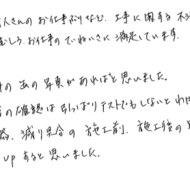 人さんのお仕事ぶりなど、工事に関する不
お仕事のていねいさに満足しています。
の缶の写真があればと思いました。
の確認は引っぱりテストでもしないとわ
減り具合の施工前、施工後の
upすると思いました。